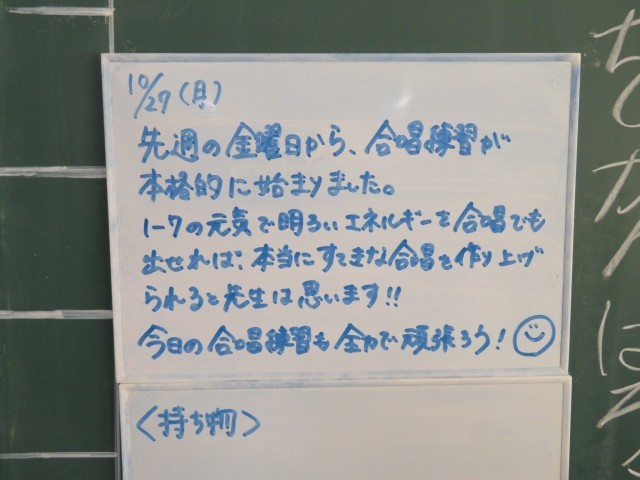 10/27(月)
先週の金曜日から、合唱練習が
本格的に始まりました。
1-7の元気で明るいエネルギーを合唱でも
出せれば、本当にすてきな合唱を作り上げ
られると先生は思います!!
今日の合唱練習も全力で頑張ろう!
<持ち物>